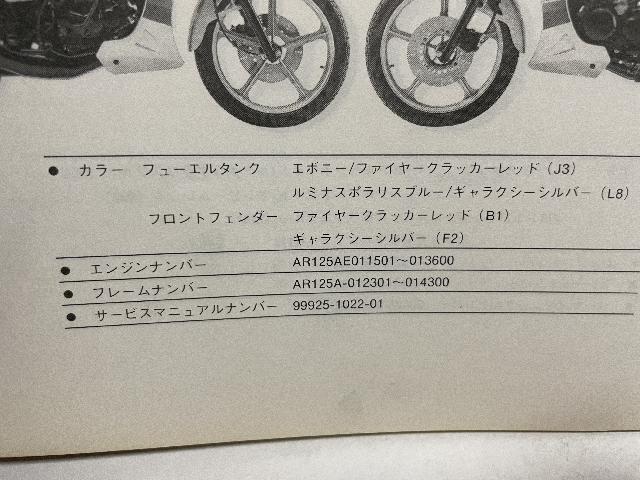 ● カラー フューエルタンク エボニー/ファイヤークラッカーレッド(J3)
ルミナスポラリスブルー/ギャラクシーシルバー(L8)
フロントフェンダー ファイヤークラッカーレッド(B1)
ギャラクシーシルバー(F2)
● エンジンナンバー AR125AE011501〜013600
● フレームナンバー AR125A-012301〜014300
● サービスマニュアルナンバー 99925-1022-01